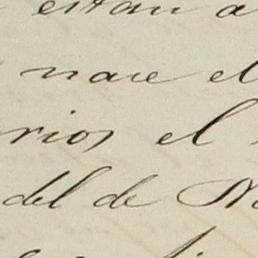 estan a
nace el
rios el
del de